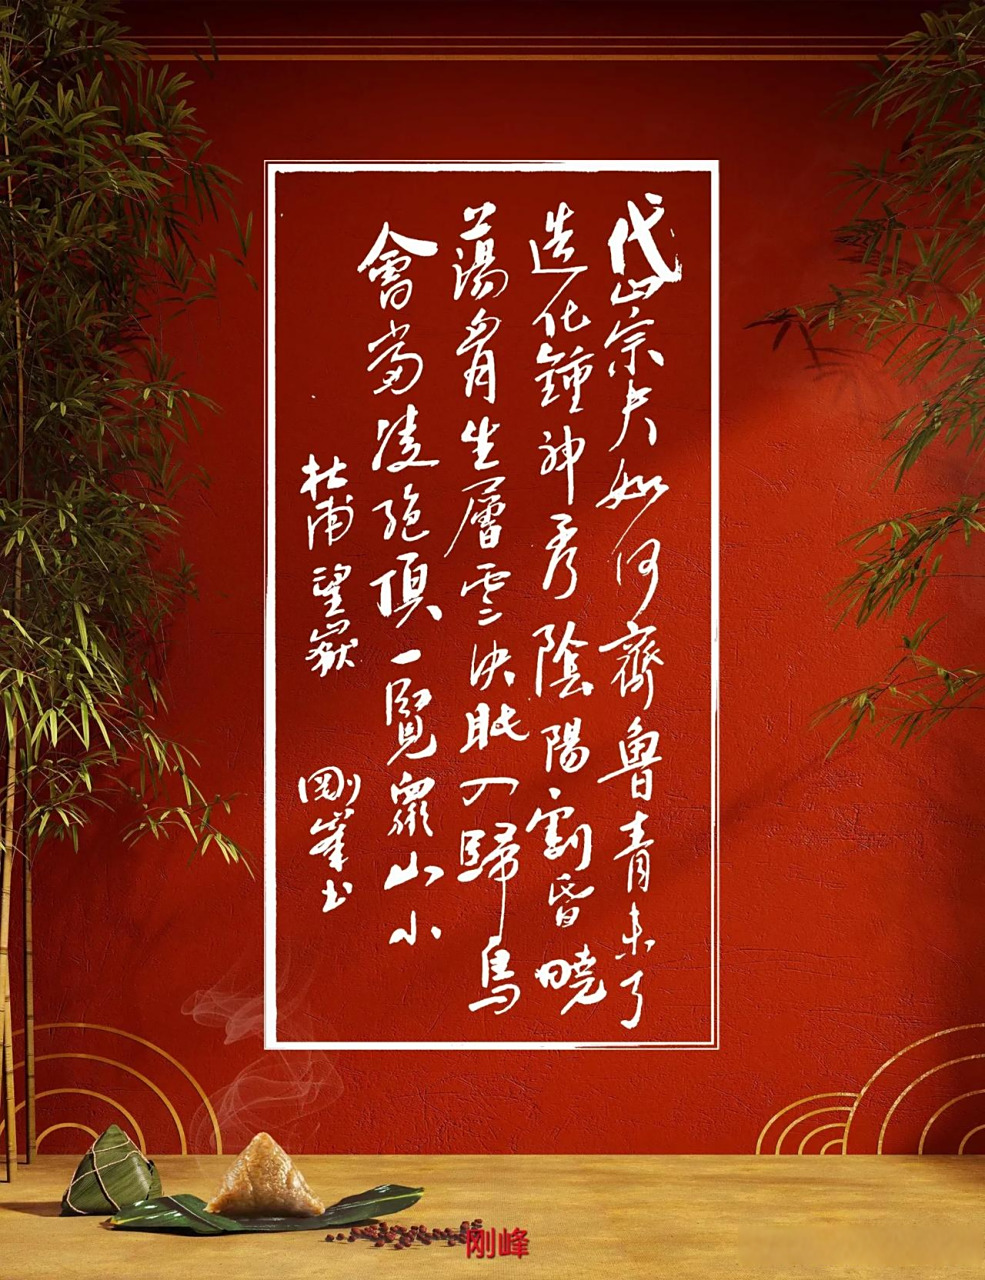 岱宗夫如何齊魯青未了
造化鍾神秀陰陽割昏曉
蕩胷生層雲決眦入歸鳥
會當凌絕頂一覽衆山小
杜甫望嶽 剛峯書
刚峰